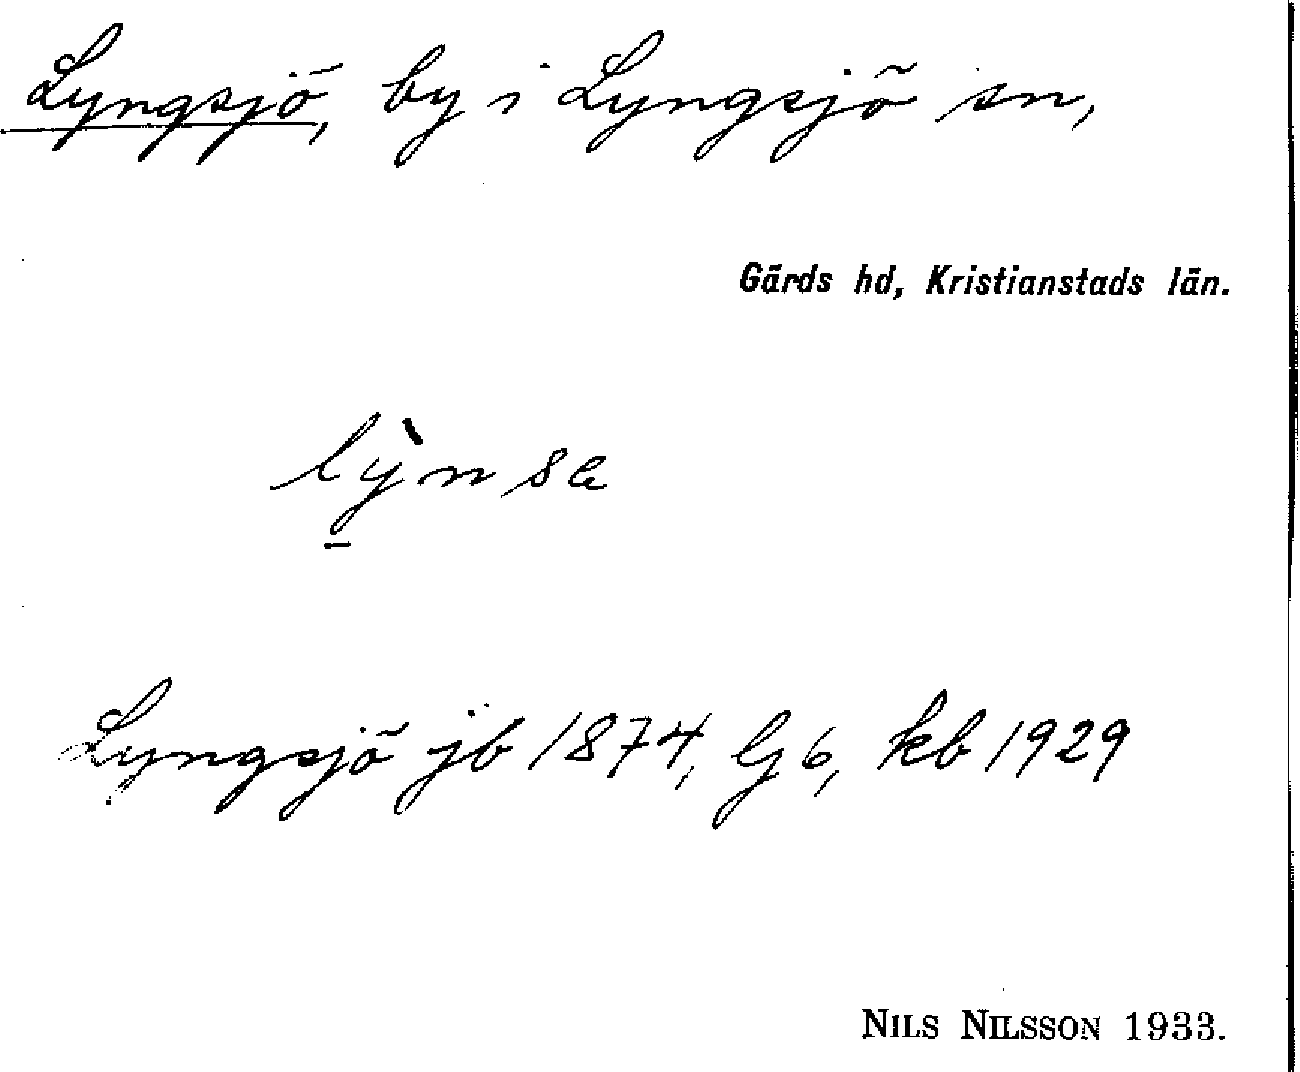 Lyngsjö, by i Lyngsjö sn,
Gärds hd, Kristianstads län.
lỳnsa
Lyngsjö jb 1874, G 6, kb 1929
NILS NILSSON 1933.